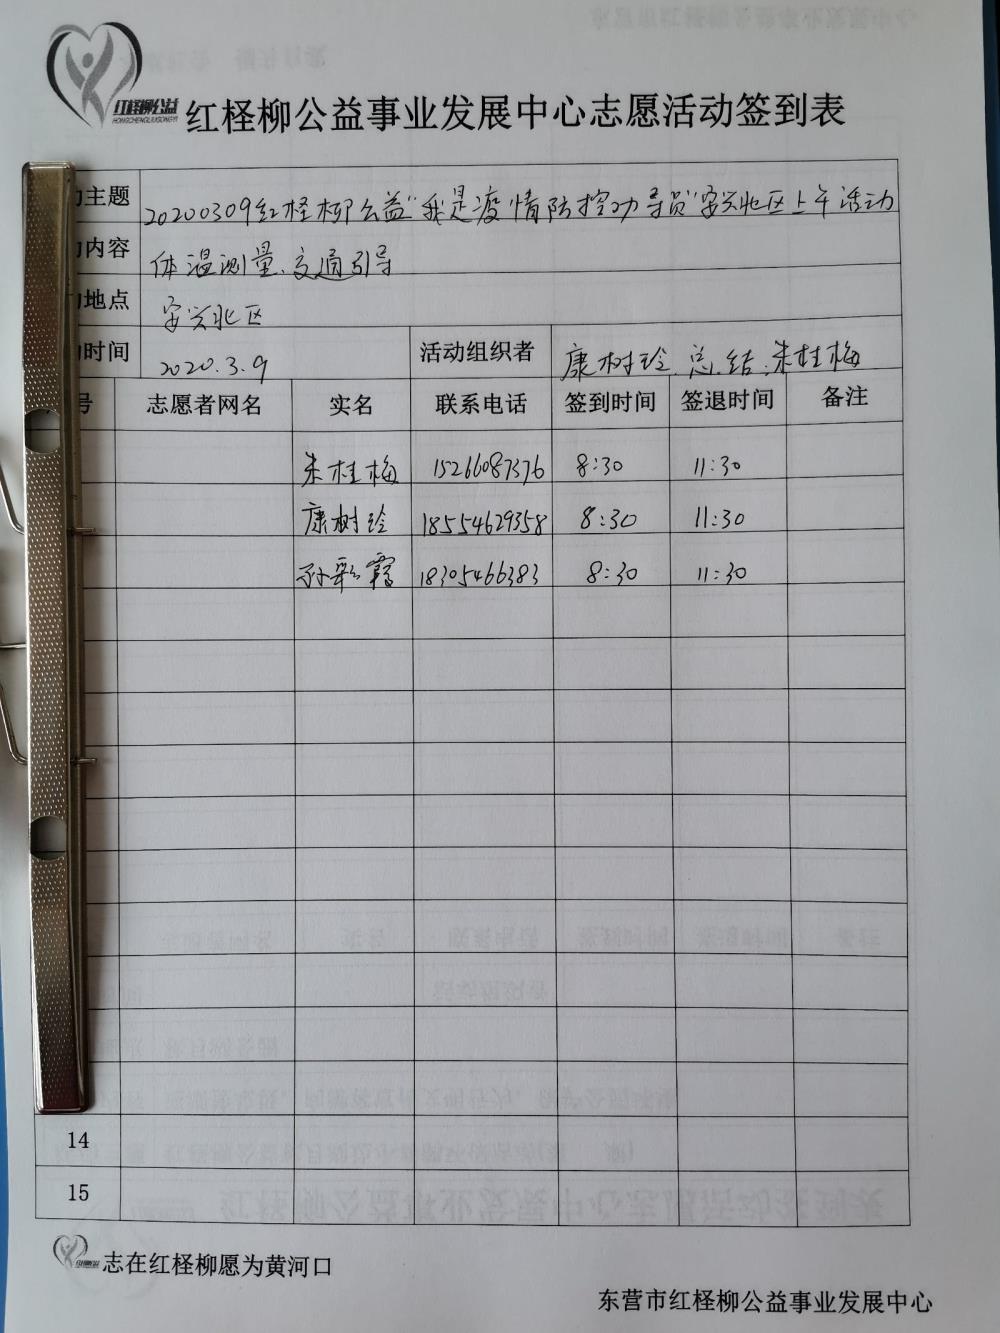 红柽柳公益
HONGCHENGLIUGONGYI
红柽柳公益事业发展中心志愿活动签到表
主题 20200309红柽柳公益“我是疫情防控劝导员”安兴北区上午活动
内容 体温测量、交通引导
地点 安兴北区
时间 2020.3.9 活动组织者 康树玲 总结:朱桂梅
号 志愿者网名 实名 联系电话 签到时间 签退时间 备注
朱桂梅 15266087376 8:30 11:30
康树玲 18554629358 8:30 11:30
孙彩霞 18305466383 8:30 11:30
14
15
志在红柽柳愿为黄河口
东营市红柽柳公益事业发展中心